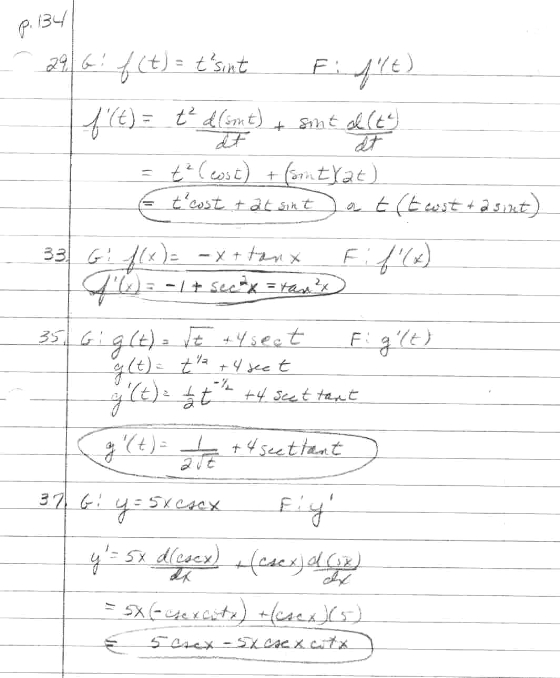 p.134
29. G: f(t) = t²sint F: f'(t)
f'(t) = t² d(sint)/dt + sint d(t²)/dt
= t²(cost) + (sint)(2t)
= t²cost + 2t sint or t(tcost + 2sint)
33. G: f(x) = -x + tanx F: f'(x)
f'(x) = -1 + sec²x = tan²x
35. G: g(t) = √t + 4sect F: g'(t)
g(t) = t^1/2 + 4sect
g'(t) = 1/2 t^-1/2 + 4 sect tant
g'(t) = 1/(2√t) + 4 sect tant
37. G: y = 5xcscx F: y'
y' = 5x d(cscx)/dx + (cscx) d(5x)/dx
= 5x(-cscxcotx) + (cscx)(5)
= 5cscx - 5xcscxcotx